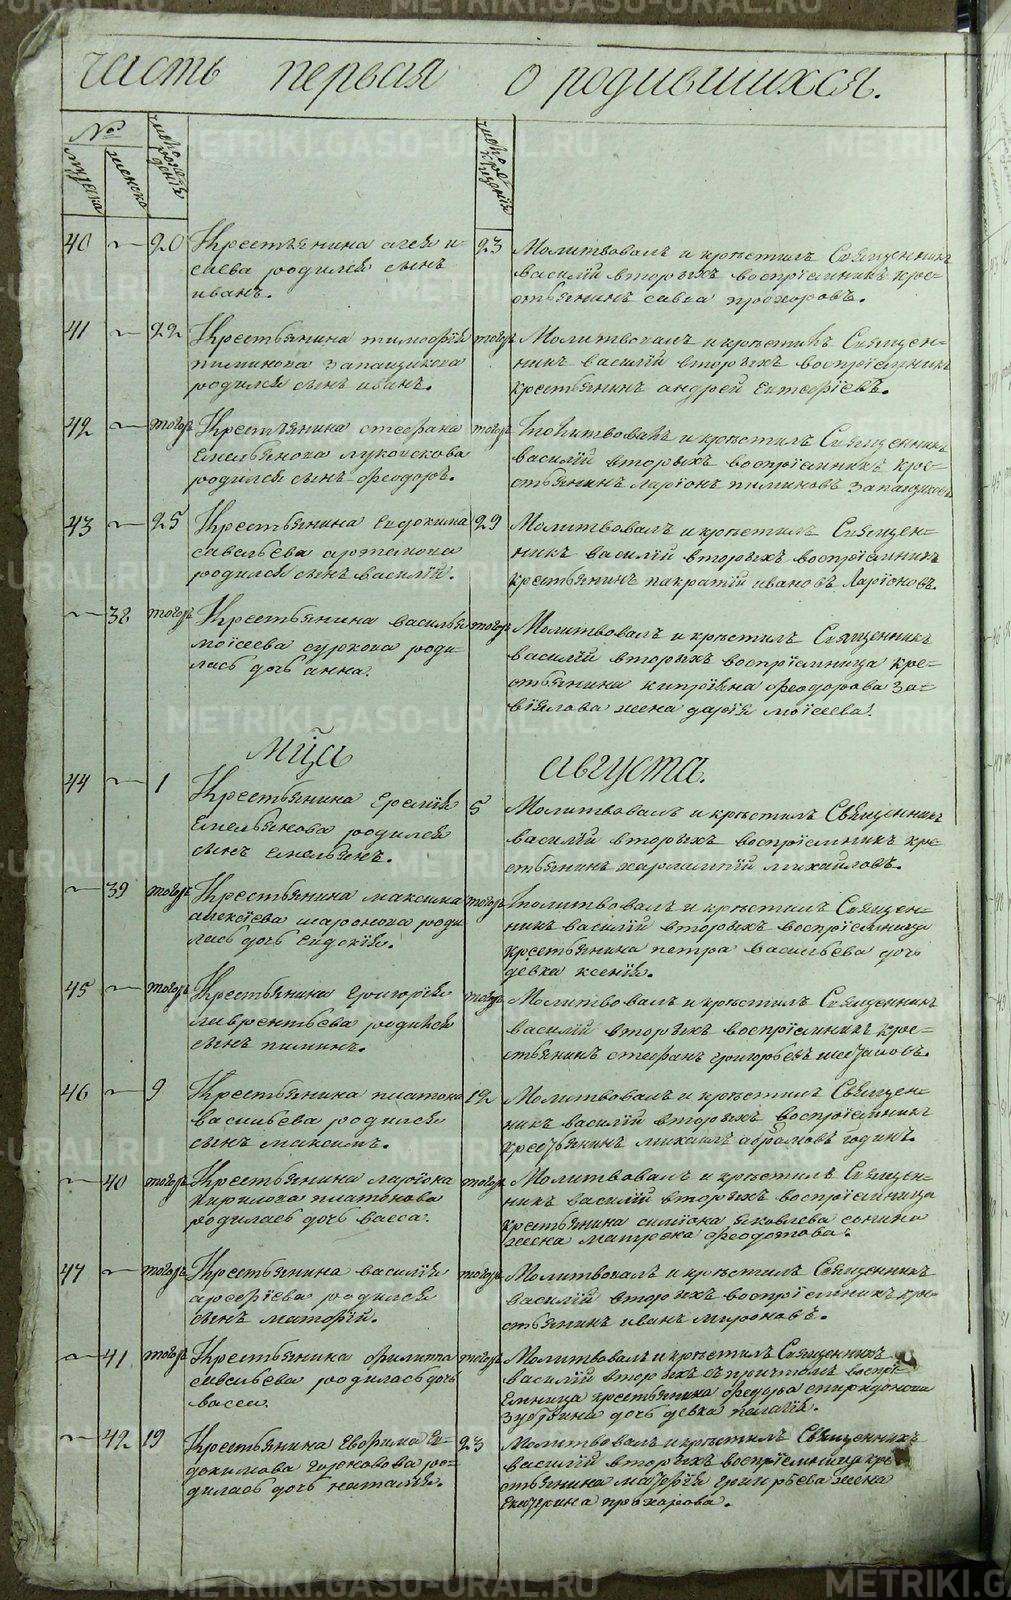 часть первая о родившихся.
№
мужеска
женска
число рождения
число крещения
40 20 Крестьянина агея и-
сеева родился сынъ
иванъ.
23 Молитвовалъ и крѣстилъ Священникъ
василий вторыхъ воспрiемникъ кре-
стьянинъ савва прохоровъ.
41 22 Крестьянина тимофѣя
пиминова Запащикова
родился сынъ иванъ.
тогожъ Молитвовалъ и крѣстилъ Священ-
никъ василий вторыхъ воспрiемникъ
крестьянинъ андрей Евтефiевъ.
42 тогожъ Крестьянина стефана
Емельянова лукоискова
родился сынъ феодоръ.
тогожъ Молитвовалъ и крѣстилъ Священникъ
василий вторыхъ воспрiемникъ кре-
стьянинъ Ларiонъ пиминовъ Запащиковъ
43 25 Крестьянина Евдокима
савельева артемова
родился сынъ василiй.
29 Молитвовалъ и крѣстилъ Священ-
никъ василiй вторыхъ воспрiемникъ
крестьянинъ пакратiй ивановъ Ларiоновъ.
38 тогожъ Крестьянина василья
моiсеева суркова роди-
лась дочь анна.
тогожъ Молитвовалъ и крѣстилъ Священникъ
василiй вторыхъ воспрiемница кре-
стьянина кипрiяна феодорова За-
вiялова жена дарiя моiсеева.
мцⷭ҇а августа.
44 1 Крестьянина Еремiя
Емельянова родился
сынъ Емельянъ.
5 Молитвовалъ и крѣстилъ Священникъ
василiй вторыхъ воспрiемникъ кре-
стьянинъ харлампiй михайловъ.
39 тогожъ Крестьянина максима
алексiева шаронова роди
лась дочь Евдокiя.
тогожъ молитвовалъ и крѣстилъ Священ-
никъ василiй вторыхъ воспрiемница
крестьянина петра васильева дочь
девка ксенiя.
45 тогожъ Крестьянина григорiя
лаврентьева родился
сынъ пиминъ.
тогожъ Молитвовалъ и крѣстилъ Священникъ
василiй вторыхъ воспрiемникъ кре-
стьянинъ стефанъ григорьевъ
46 9 Крестьянина платона
васильева родился
сынъ максимъ.
12 Молитвовалъ и крѣстилъ Священ-
никъ василiй вторыхъ воспрiемникъ
крестьянинъ михаилъ абрамовъ годинъ.
40 тогожъ Крестьянина ларiона
кирилова платонова
родилась дочь васса.
тогожъ Молитвовалъ и крѣстилъ Священ-
никъ василiй вторыхъ воспрiемница
крестьянина симiона яковлева сонина
жена матрона феодотова.
47 тогожъ Крестьянина василiя
арсефiева родился
сынъ матофiй.
тогожъ Молитвовалъ и крѣстилъ Священникъ
василiй вторыхъ воспрiемникъ кре-
стьянинъ иванъ мироновъ.
41 тогожъ Крестьянина филиппа
савельева родилась дочь
васса.
тогожъ Молитвовалъ и крѣстилъ Священникъ
василiй вторыхъ съ причтомъ воспрi-
Емница крестьянина федора спиридонова
дочь девка пелагiя.
42 19 Крестьянина Евфима Ев-
докимова ро-
дилась дочь наталiя.
23 Молитвовалъ и крѣстилъ Священникъ
василiй вторыхъ воспрiемница кре
стьянина матфiя григорьева жена
Екатерина прохорова.
METRIKI.GASO-URAL.RU